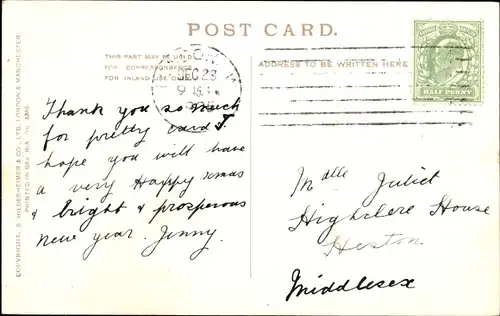 POST CARD.
THIS PART MAY BE USED
FOR CORRESPONDENCE
FOR INLAND USE
ADDRESS TO BE WRITTEN HERE
DEC 23
HALF PENNY
COPYRIGHT, S. HILDESHEIMER & CO., LTD., LONDON & MANCHESTER.
PRINTED IN BAVARIA
Thank you so much
for pretty card I
hope you will have
a very Happy xmas
& bright & prosperous
new year. Jenny.
Mdlle Juliet
Highclere House
Heston
Middlesex